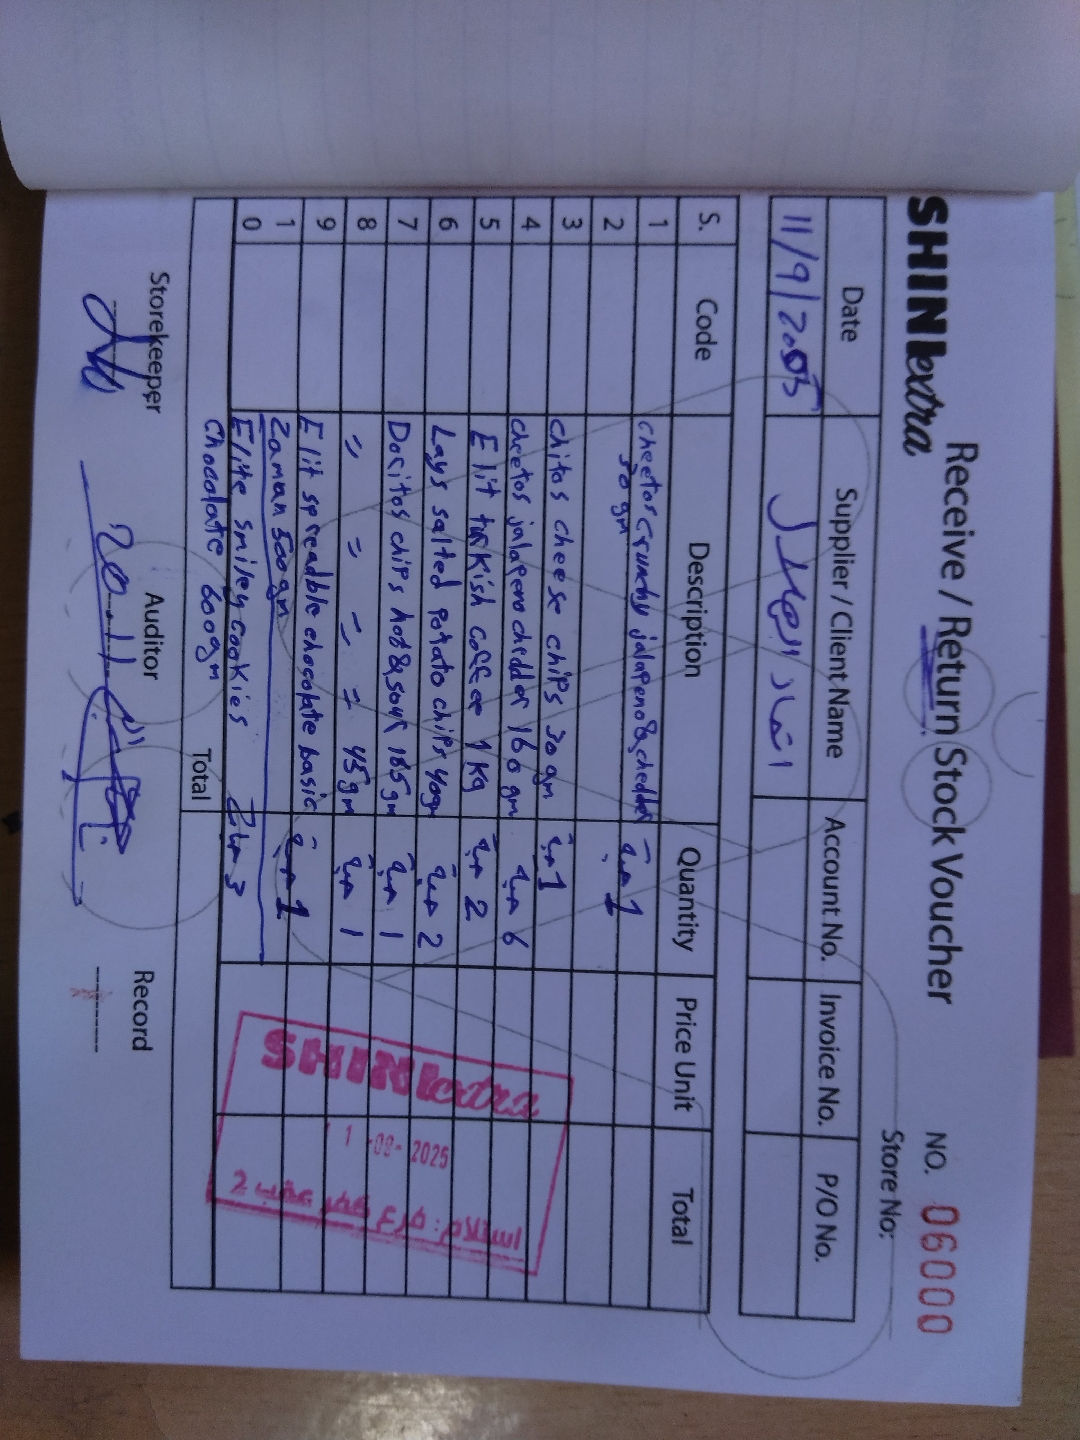 SHINIextra
Receive / Return Stock Voucher
NO. 06000
Store No:
Date Supplier / Client Name Account No. Invoice No. P/O No.
11/9/2025
S. Code Description Quantity Price Unit Total
1 cheetos crunchy jalapeno & chedder 1
2 30 gm
3 chitos cheese chips 30 gm 1
4 cheetos jalapeno chedder 160 gm 6
5 Elit turkish coffee 1 kg 2
6 Lays salted potato chips 40gm 2
7 Docitos chips hot & sour 185 gm 1
8 = = = = 45gm 1
9 Elit spreadble chocolate basic 1
1 zaman 500gm
0 Elite smiley cookies 3
chocolate 600gm
Total
SHINIextra
1 -09- 2025
استلام: فرع كفر عقب 2
Storekeeper Auditor Record